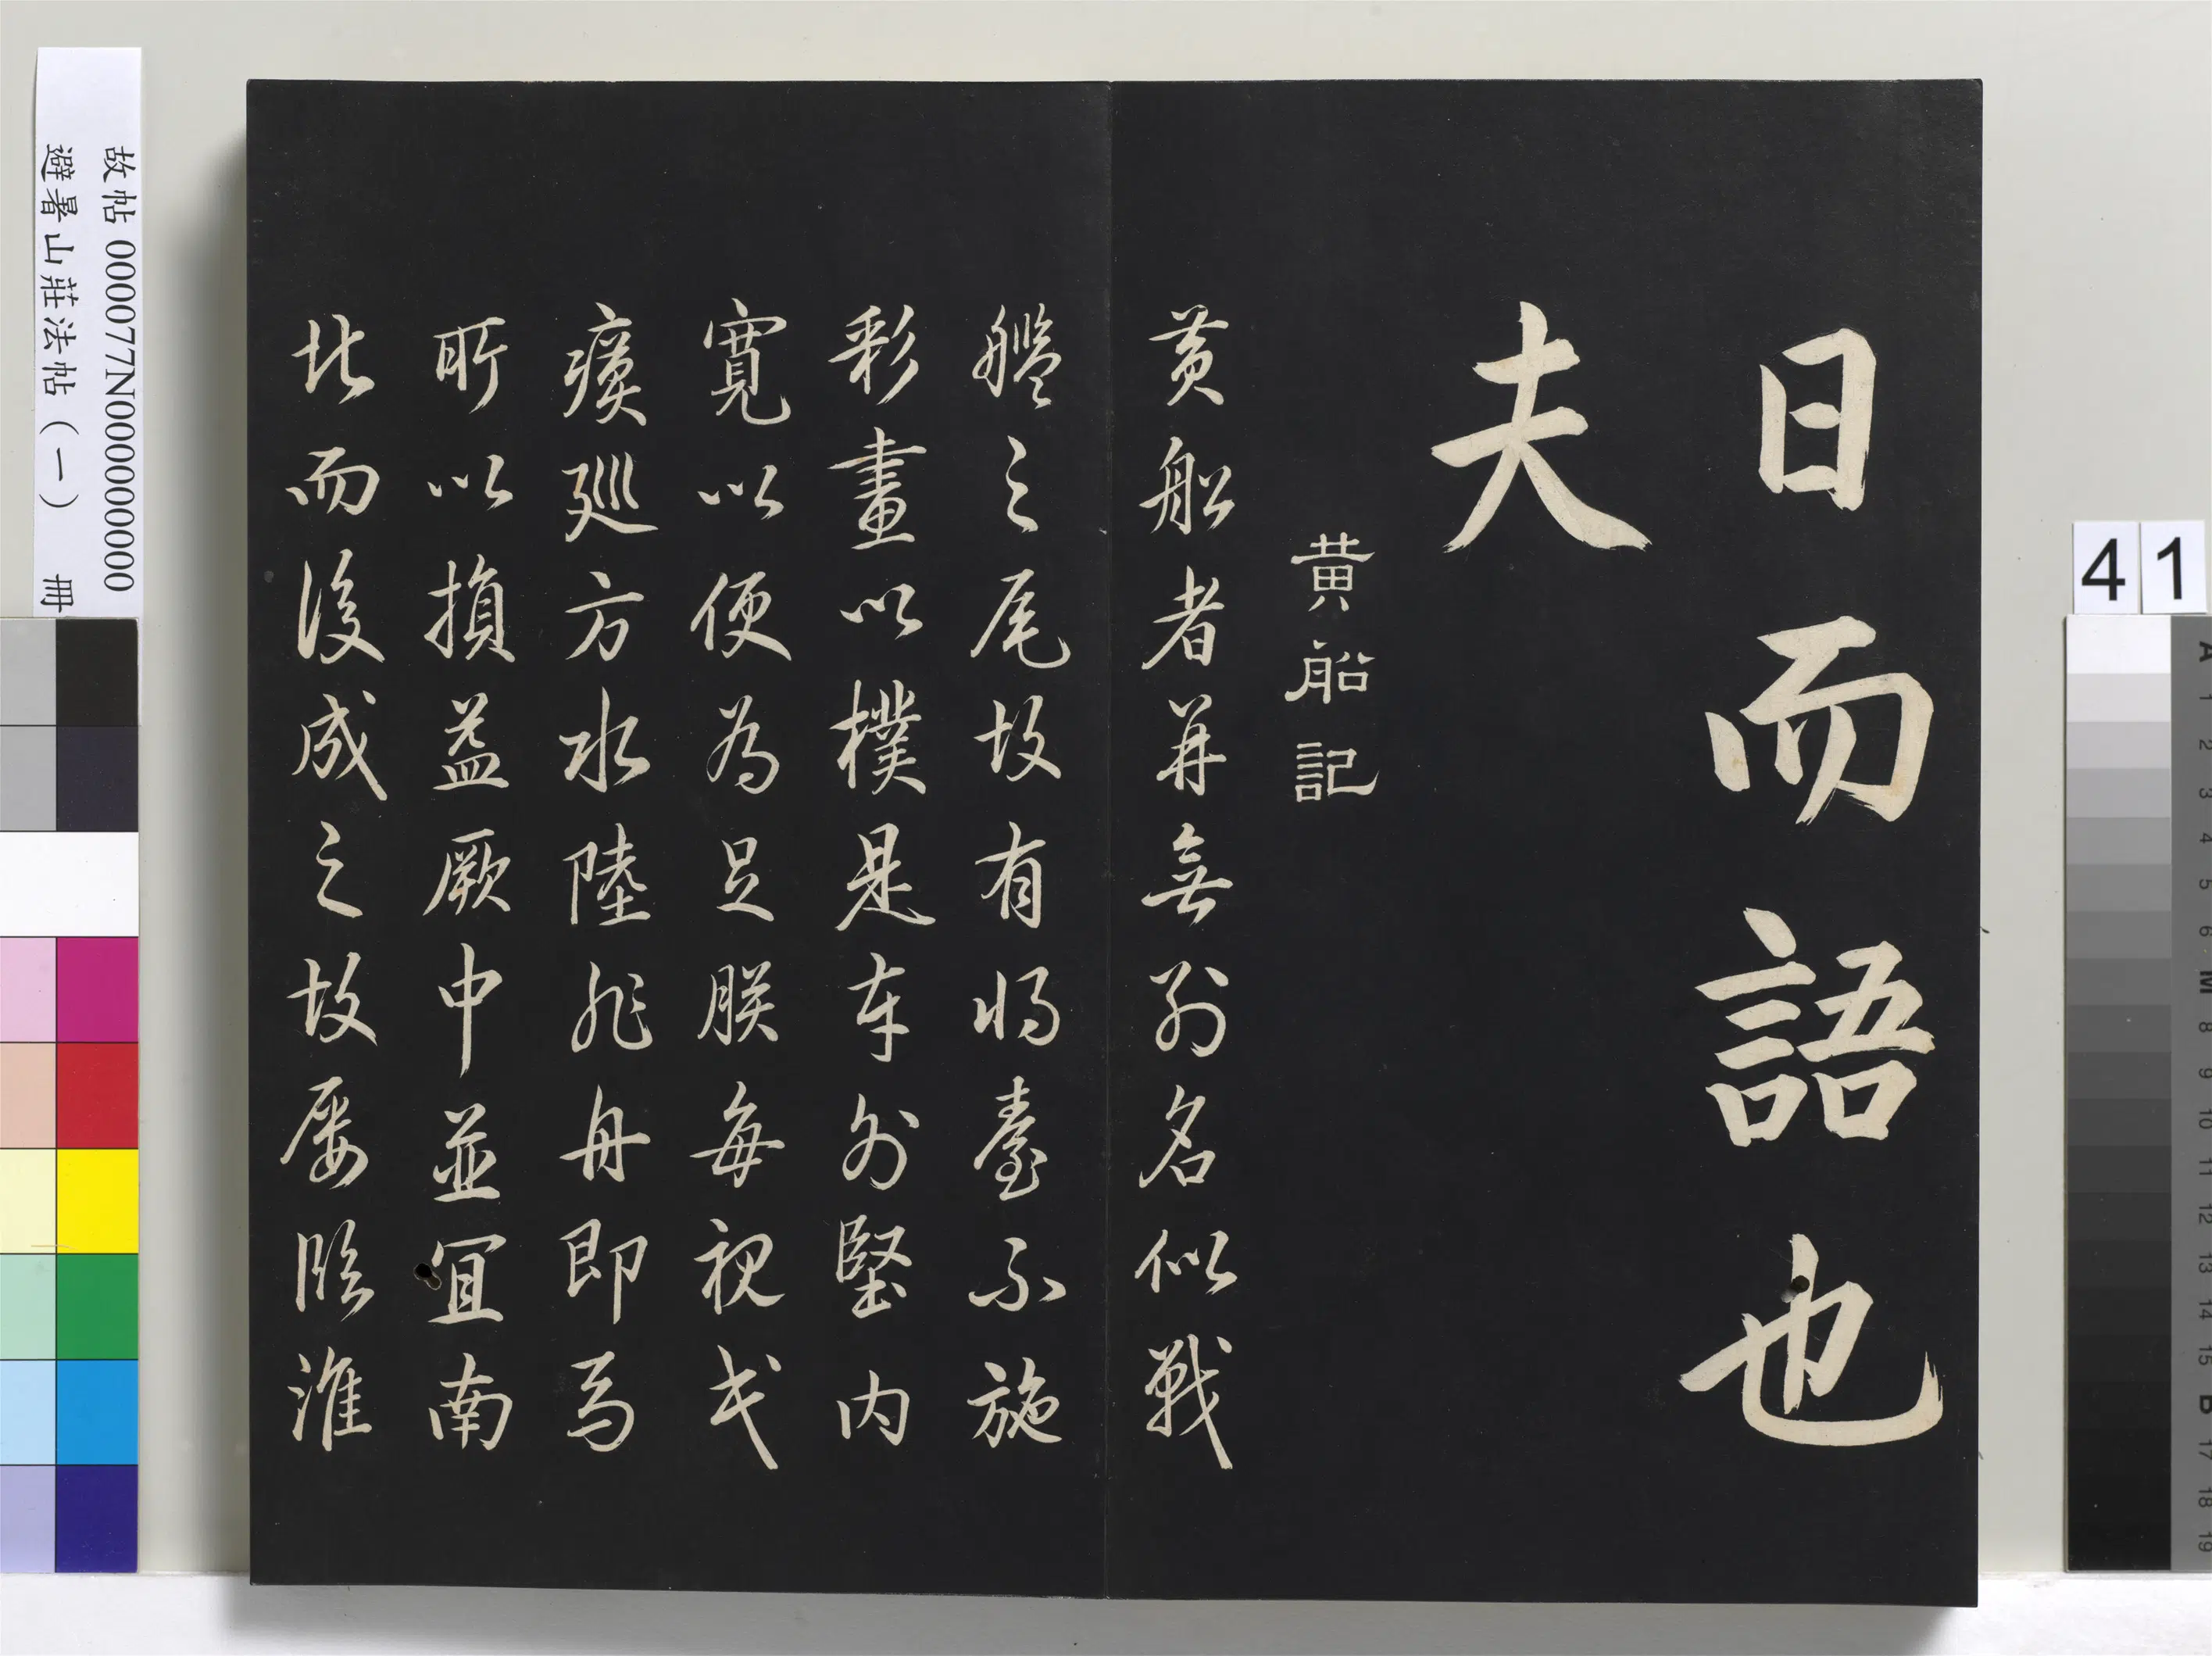 日而語也
夫
黄船記
黄船者并無别名似戰
艦之尾故有將臺不施
彩畫以樸是本外堅内
寬以便為足朕每視民
瘼廵方水陸非舟即馬
所以損益厥中並宜南
北而後成之故屡臨淮
故帖 000077N000000000
避暑山莊法帖（一） 冊
41
A 1 2 3 4 5 6 M 8 9 10 11 12 13 14 15 B 17 18 19